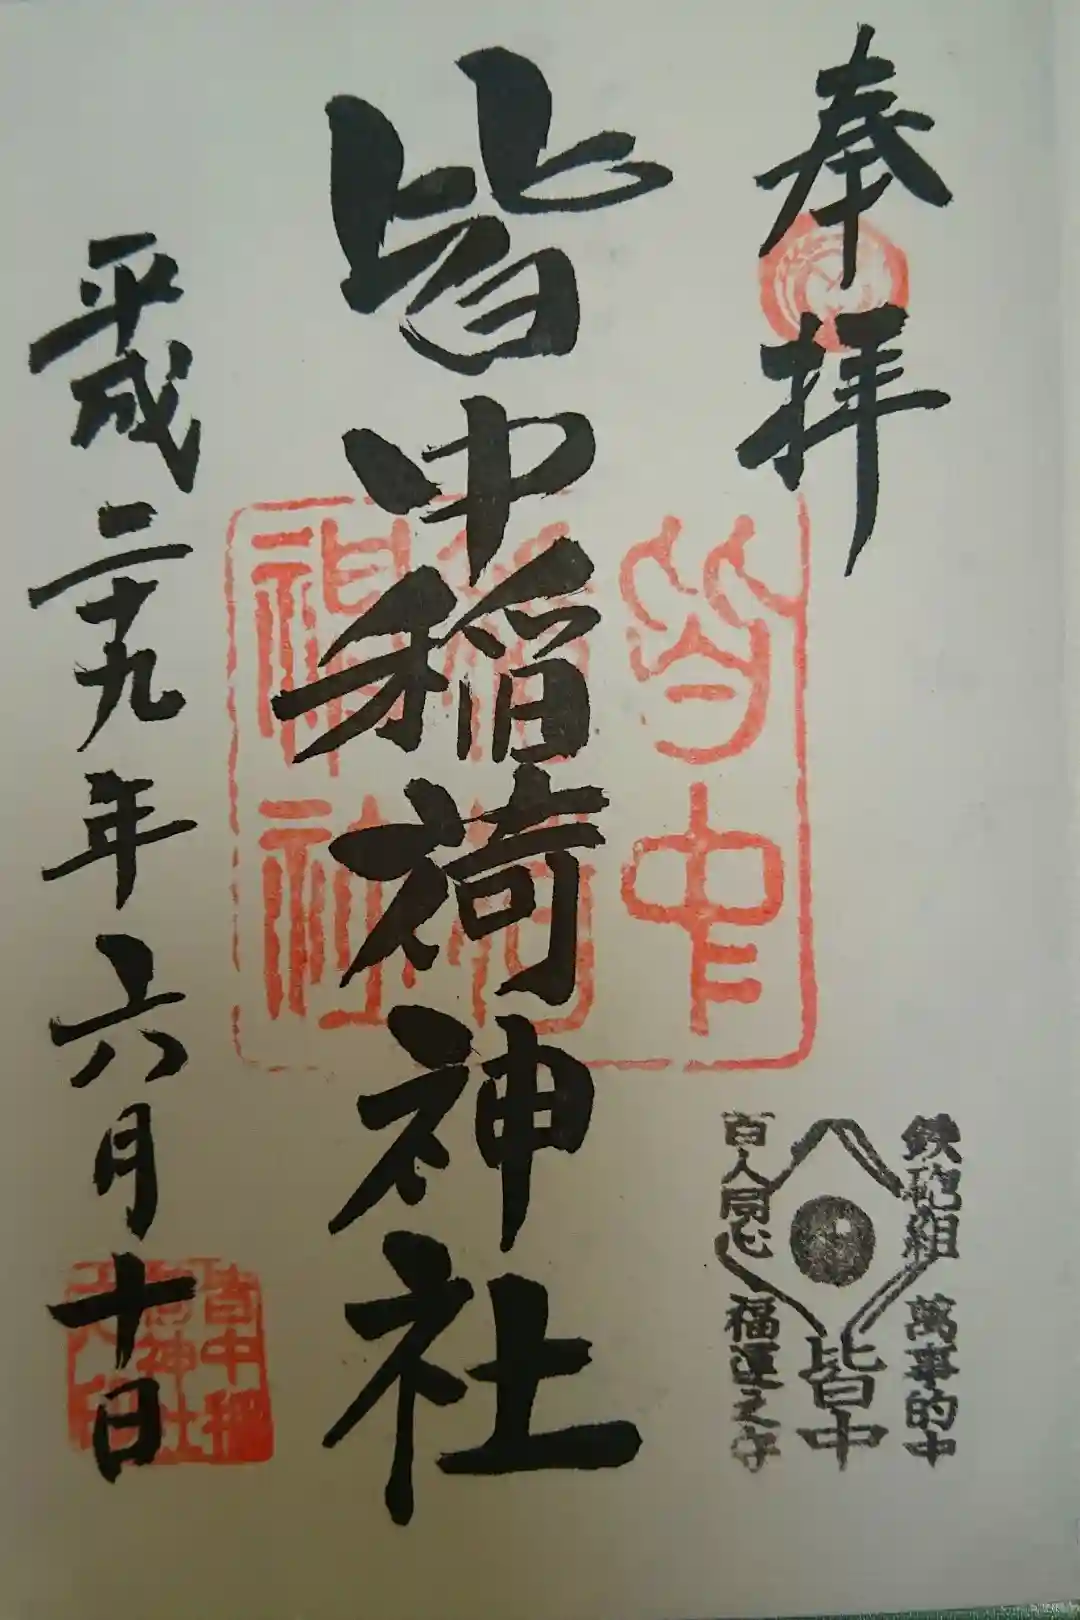 奉拝
鉄砲組
百人同心
萬事的中
皆中
福運之守
皆中稲荷神社
皆中
稲荷
神社
平成二十九年六月十日